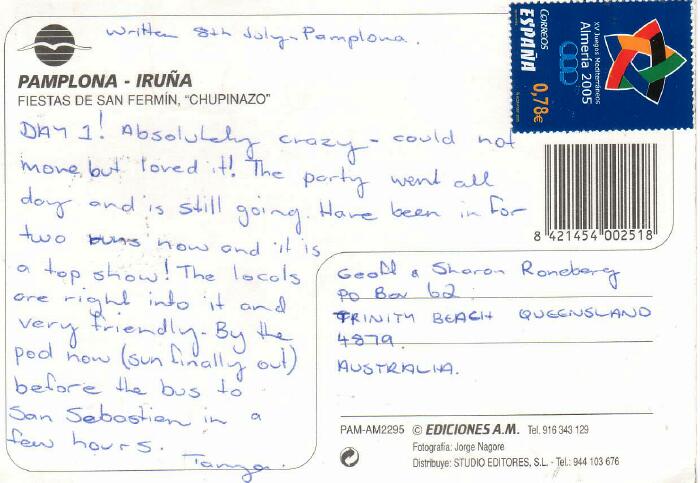 Written 8th July - Pamplona.
PAMPLONA - IRUÑA
FIESTAS DE SAN FERMÍN, "CHUPINAZO"
DAY 1! Absolutely crazy - could not
move but loved it! The party went all
day and is still going. Have been in for
two runs now and it is
a top show! The locals
are right into it and
very friendly. By the
pool now (sun finally out)
before the bus to
San Sebastien in a
few hours.
Tanya.
CORREOS
ESPAÑA
0,78€
XV Juegos Mediterráneos
Almería 2005
8 421454 002518
Geoff & Sharon Roneberg
PO Box 62
TRINITY BEACH QUEENSLAND
4879.
AUSTRALIA.
PAM-AM2295 © EDICIONES A.M. Tel. 916 343 129
Fotografía: Jorge Nagore
Distribuye: STUDIO EDITORES, S.L. - Tel.: 944 103 676